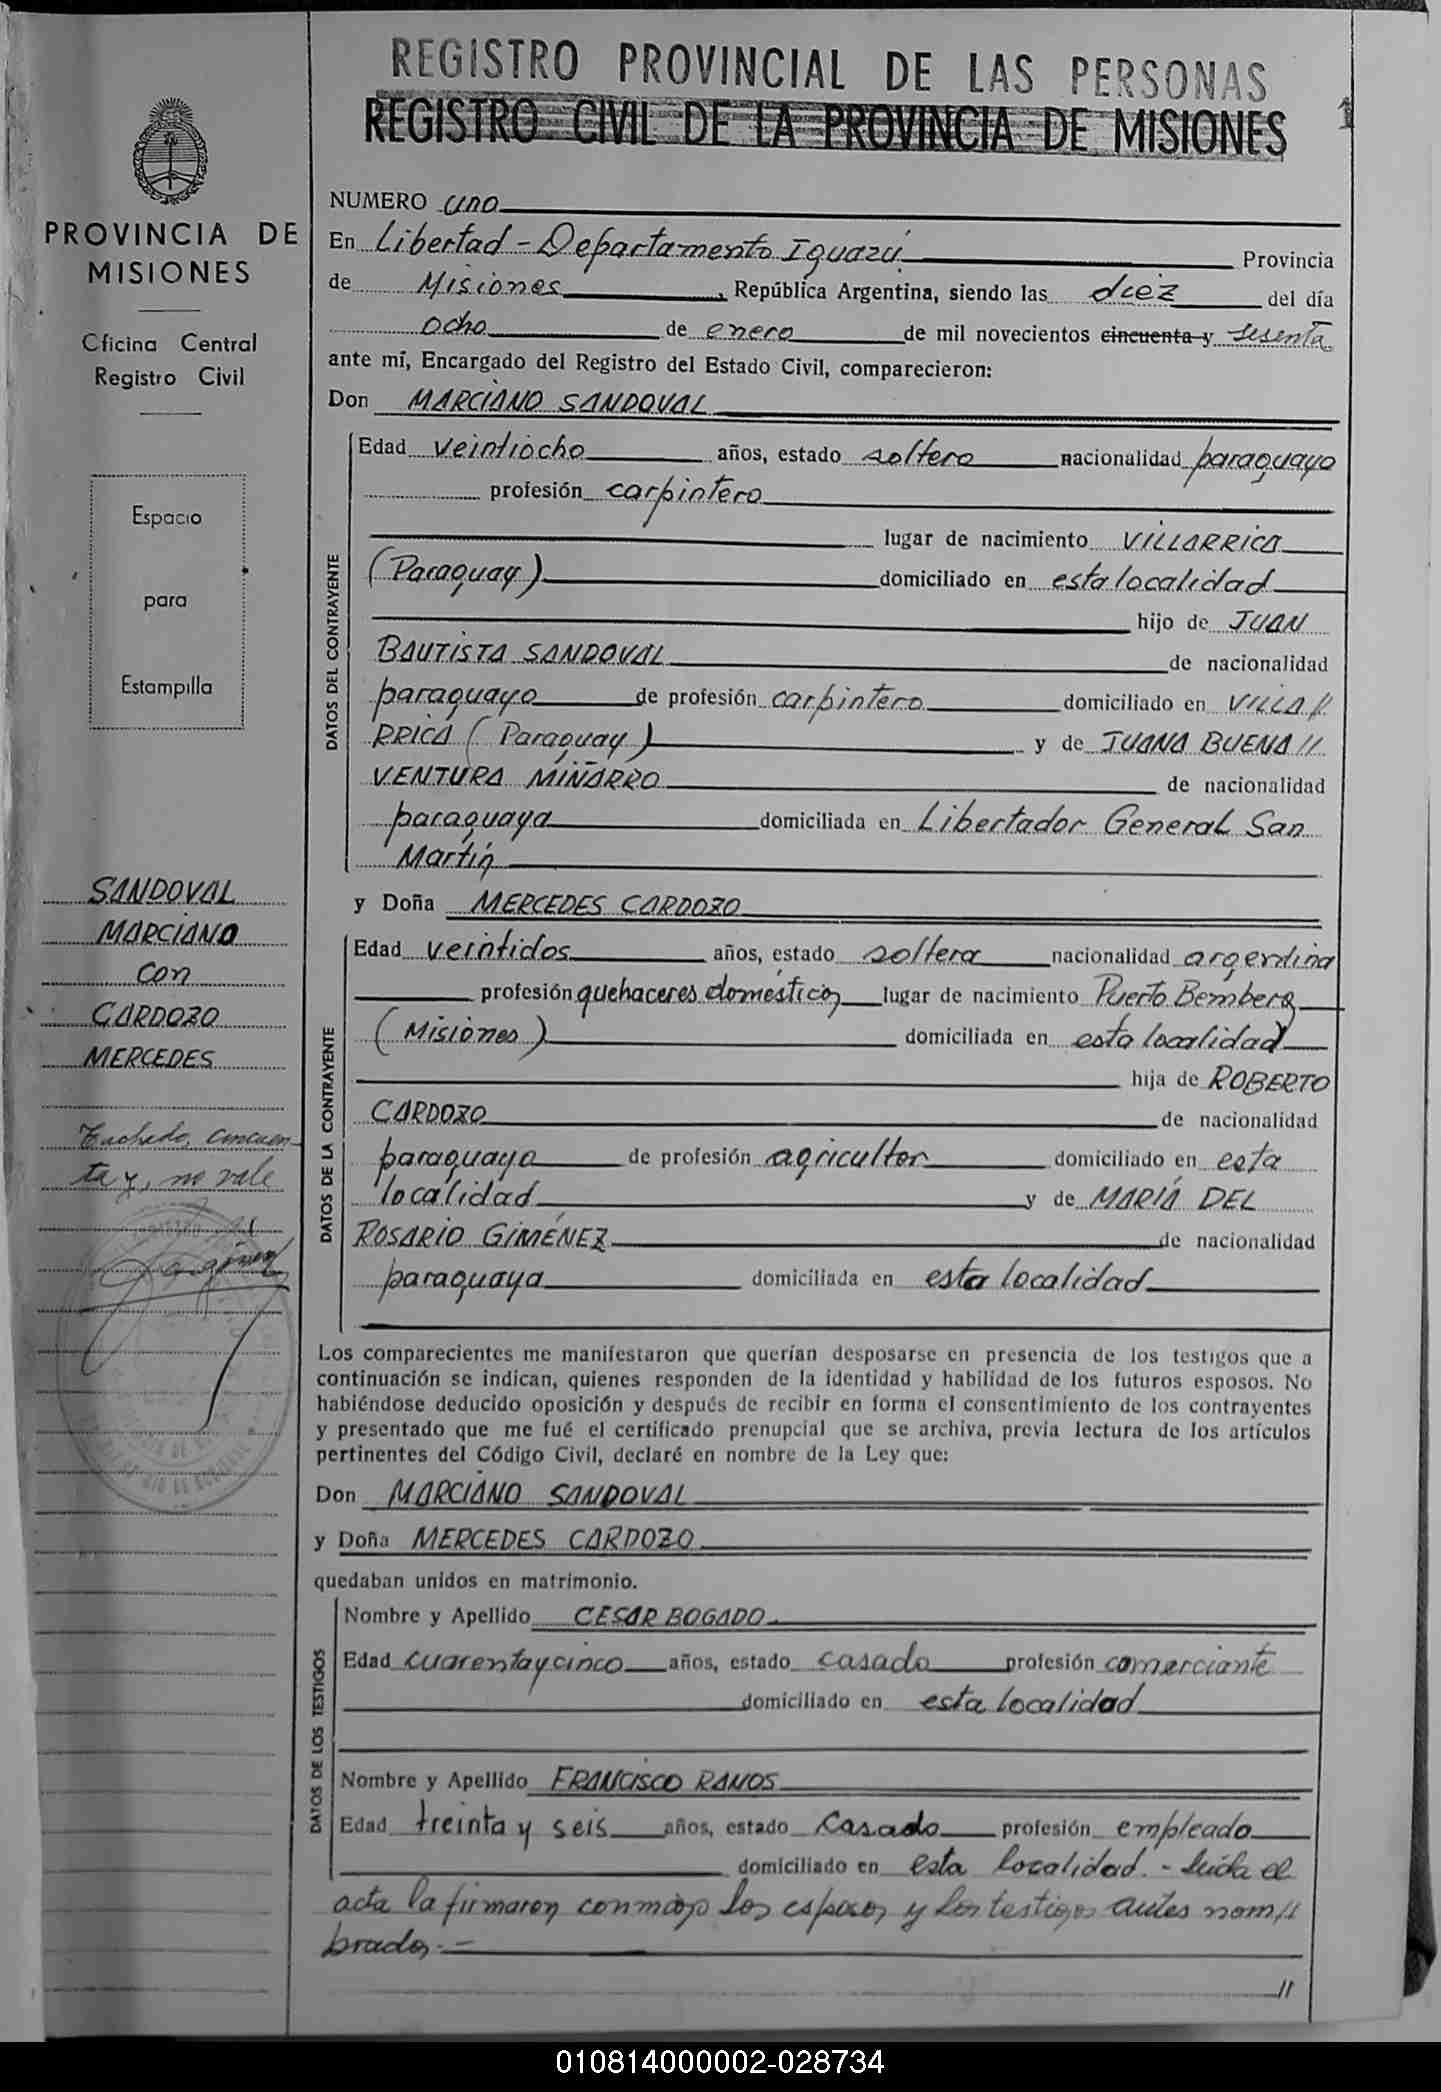 REGISTRO PROVINCIAL DE LAS PERSONAS
REGISTRO CIVIL DE LA PROVINCIA DE MISIONES
1
PROVINCIA DE
MISIONES
Oficina Central
Registro Civil
Espacio
para
Estampilla
SANDOVAL
MARCIANO
con
CARDOZO
MERCEDES
Tachado, cincuen-
ta y, no vale
NUMERO uno
En Libertad - Departamento Iguazú Provincia
de Misiones, República Argentina, siendo las diez del día
ocho de enero de mil novecientos cincuenta y sesenta
ante mí, Encargado del Registro del Estado Civil, comparecieron:
Don MARCIANO SANDOVAL
DATOS DEL CONTRAYENTE
Edad veintiocho años, estado soltero nacionalidad paraguayo
profesión carpintero
lugar de nacimiento VILLARRICA
(Paraguay) domiciliado en esta localidad
hijo de JUAN
BAUTISTA SANDOVAL de nacionalidad
paraguayo de profesión carpintero domiciliado en VILLA //
RRICA (Paraguay) y de JUANA BUENA //
VENTURA MIÑARRO de nacionalidad
paraguaya domiciliada en Libertador General San
Martín
y Doña MERCEDES CARDOZO
DATOS DE LA CONTRAYENTE
Edad veintidos años, estado soltera nacionalidad argentina
profesión quehaceres domésticos lugar de nacimiento Puerto Bemberg
(Misiones) domiciliada en esta localidad
hija de ROBERTO
CARDOZO de nacionalidad
paraguayo de profesión agricultor domiciliado en esta
localidad y de MARÍA DEL
ROSARIO GIMÉNEZ de nacionalidad
paraguaya domiciliada en esta localidad
Los comparecientes me manifestaron que querían desposarse en presencia de los testigos que a
continuación se indican, quienes responden de la identidad y habilidad de los futuros esposos. No
habiéndose deducido oposición y después de recibir en forma el consentimiento de los contrayentes
y presentado que me fué el certificado prenupcial que se archiva, previa lectura de los artículos
pertinentes del Código Civil, declaré en nombre de la Ley que:
Don MARCIANO SANDOVAL
y Doña MERCEDES CARDOZO
quedaban unidos en matrimonio.
DATOS DE LOS TESTIGOS
Nombre y Apellido CESAR BOGADO
Edad cuarenta y cinco años, estado casado profesión comerciante
domiciliado en esta localidad
Nombre y Apellido FRANCISCO RAMOS
Edad treinta y seis años, estado casado profesión empleado
domiciliado en esta localidad. - Leída el
acta la firmaron conmigo los esposos y los testigos antes nom//
brados. -
//
010814000002-028734